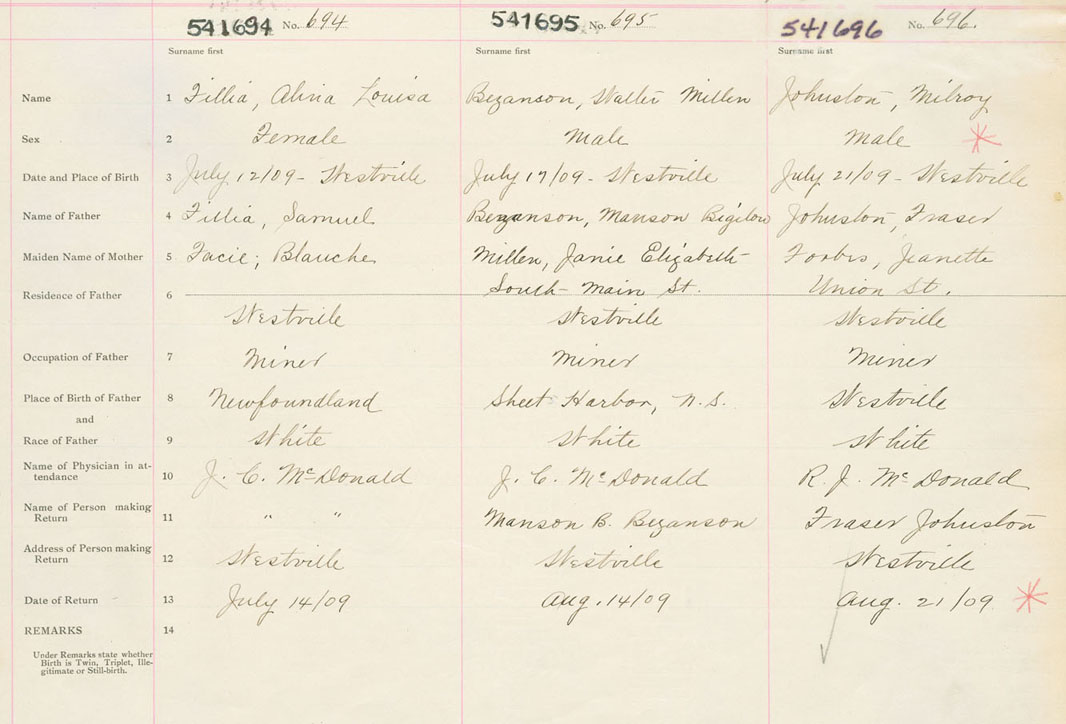 541694 No. 694 541695 No. 695 541696 No. 696.
Surname first Surname first Surname first
Name 1 Fillia, Alina Louisa Bezanson, Walter Millen Johnston, Milroy
Sex 2 Female Male Male
Date and Place of Birth 3 July 12/09 - Westville July 17/09 - Westville July 21/09 - Westville
Name of Father 4 Fillia, Samuel Bezanson, Manson Bigelow Johnston, Fraser
Maiden Name of Mother 5 Facie, Blanche Millen, Janie Elizabeth Forbes, Jeanette
South Main St. Union St.
Residence of Father 6
Westville Westville Westville
Occupation of Father 7 Miner Miner Miner
Place of Birth of Father 8 Newfoundland Sheet Harbor, N.S. Westville
and
Race of Father 9 White White White
Name of Physician in at-
tendance 10 J. C. McDonald J. C. McDonald R. J. McDonald
Name of Person making
Return 11 " " Manson B. Bezanson Fraser Johnston
Address of Person making
Return 12 Westville Westville Westville
Date of Return 13 July 14/09 Aug. 14/09 Aug. 21/09
REMARKS 14
Under Remarks state whether
Birth is Twin, Triplet, Ille-
gitimate or Still-birth.